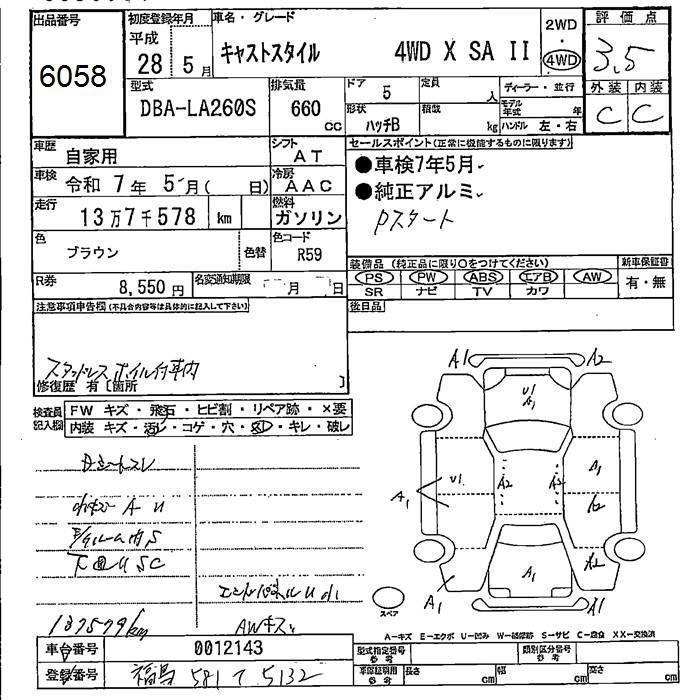 出品番号
6058
初度登録年月
平成
28 5月
車名・グレード
キャストスタイル 4WD X SA II
2WD
4WD
評価点
3.5
外装 内装
C C
型式
DBA-LA260S
排気量
660
cc
ドア
5
定員
人
形状
ハッチB
積載
kg
ディーラー・並行
モデル年式 年
ハンドル 左・右
車歴
自家用
シフト
AT
車検
令和 7年 5月( 日)
冷房
AAC
走行
13万7千578 km
燃料
ガソリン
色
ブラウン
色替
色コード
R59
R券
8,550円
名変通知期限
月 日
セールスポイント(正常に機能するものに限ります)
●車検7年5月
●純正アルミ
Pスタート
装備品(純正品に限り○をつけてください)
PS PW ABS エアB AW
SR ナビ TV カワ
新車保証書
有・無
後日品
注意事項申告欄(不具合内容等は具体的に記入して下さい)
スタッドレスホイル付車内
修復歴 有[箇所 ]
検査員記入欄
FW キズ・飛石・ヒビ割・リペア跡・×要
内装 キズ・汚レ・コゲ・穴・スレ・キレ・破レ
A U
下回 U S C
137579km
AWキズ
A1 A2
U1
A1
U1.
A1
A2
A2
A1
A2
A1
A2
A1
A1
スペア
A-キズ E-エクボ U-凹み W-補修跡 S-サビ C-腐食 XX-交換済
車台番号
0012143
登録番号
福島 581 て 5132
型式指定番号
参考
類別区分番号
参考
車庫証明用
参考
長さ cm
幅 cm
高さ cm